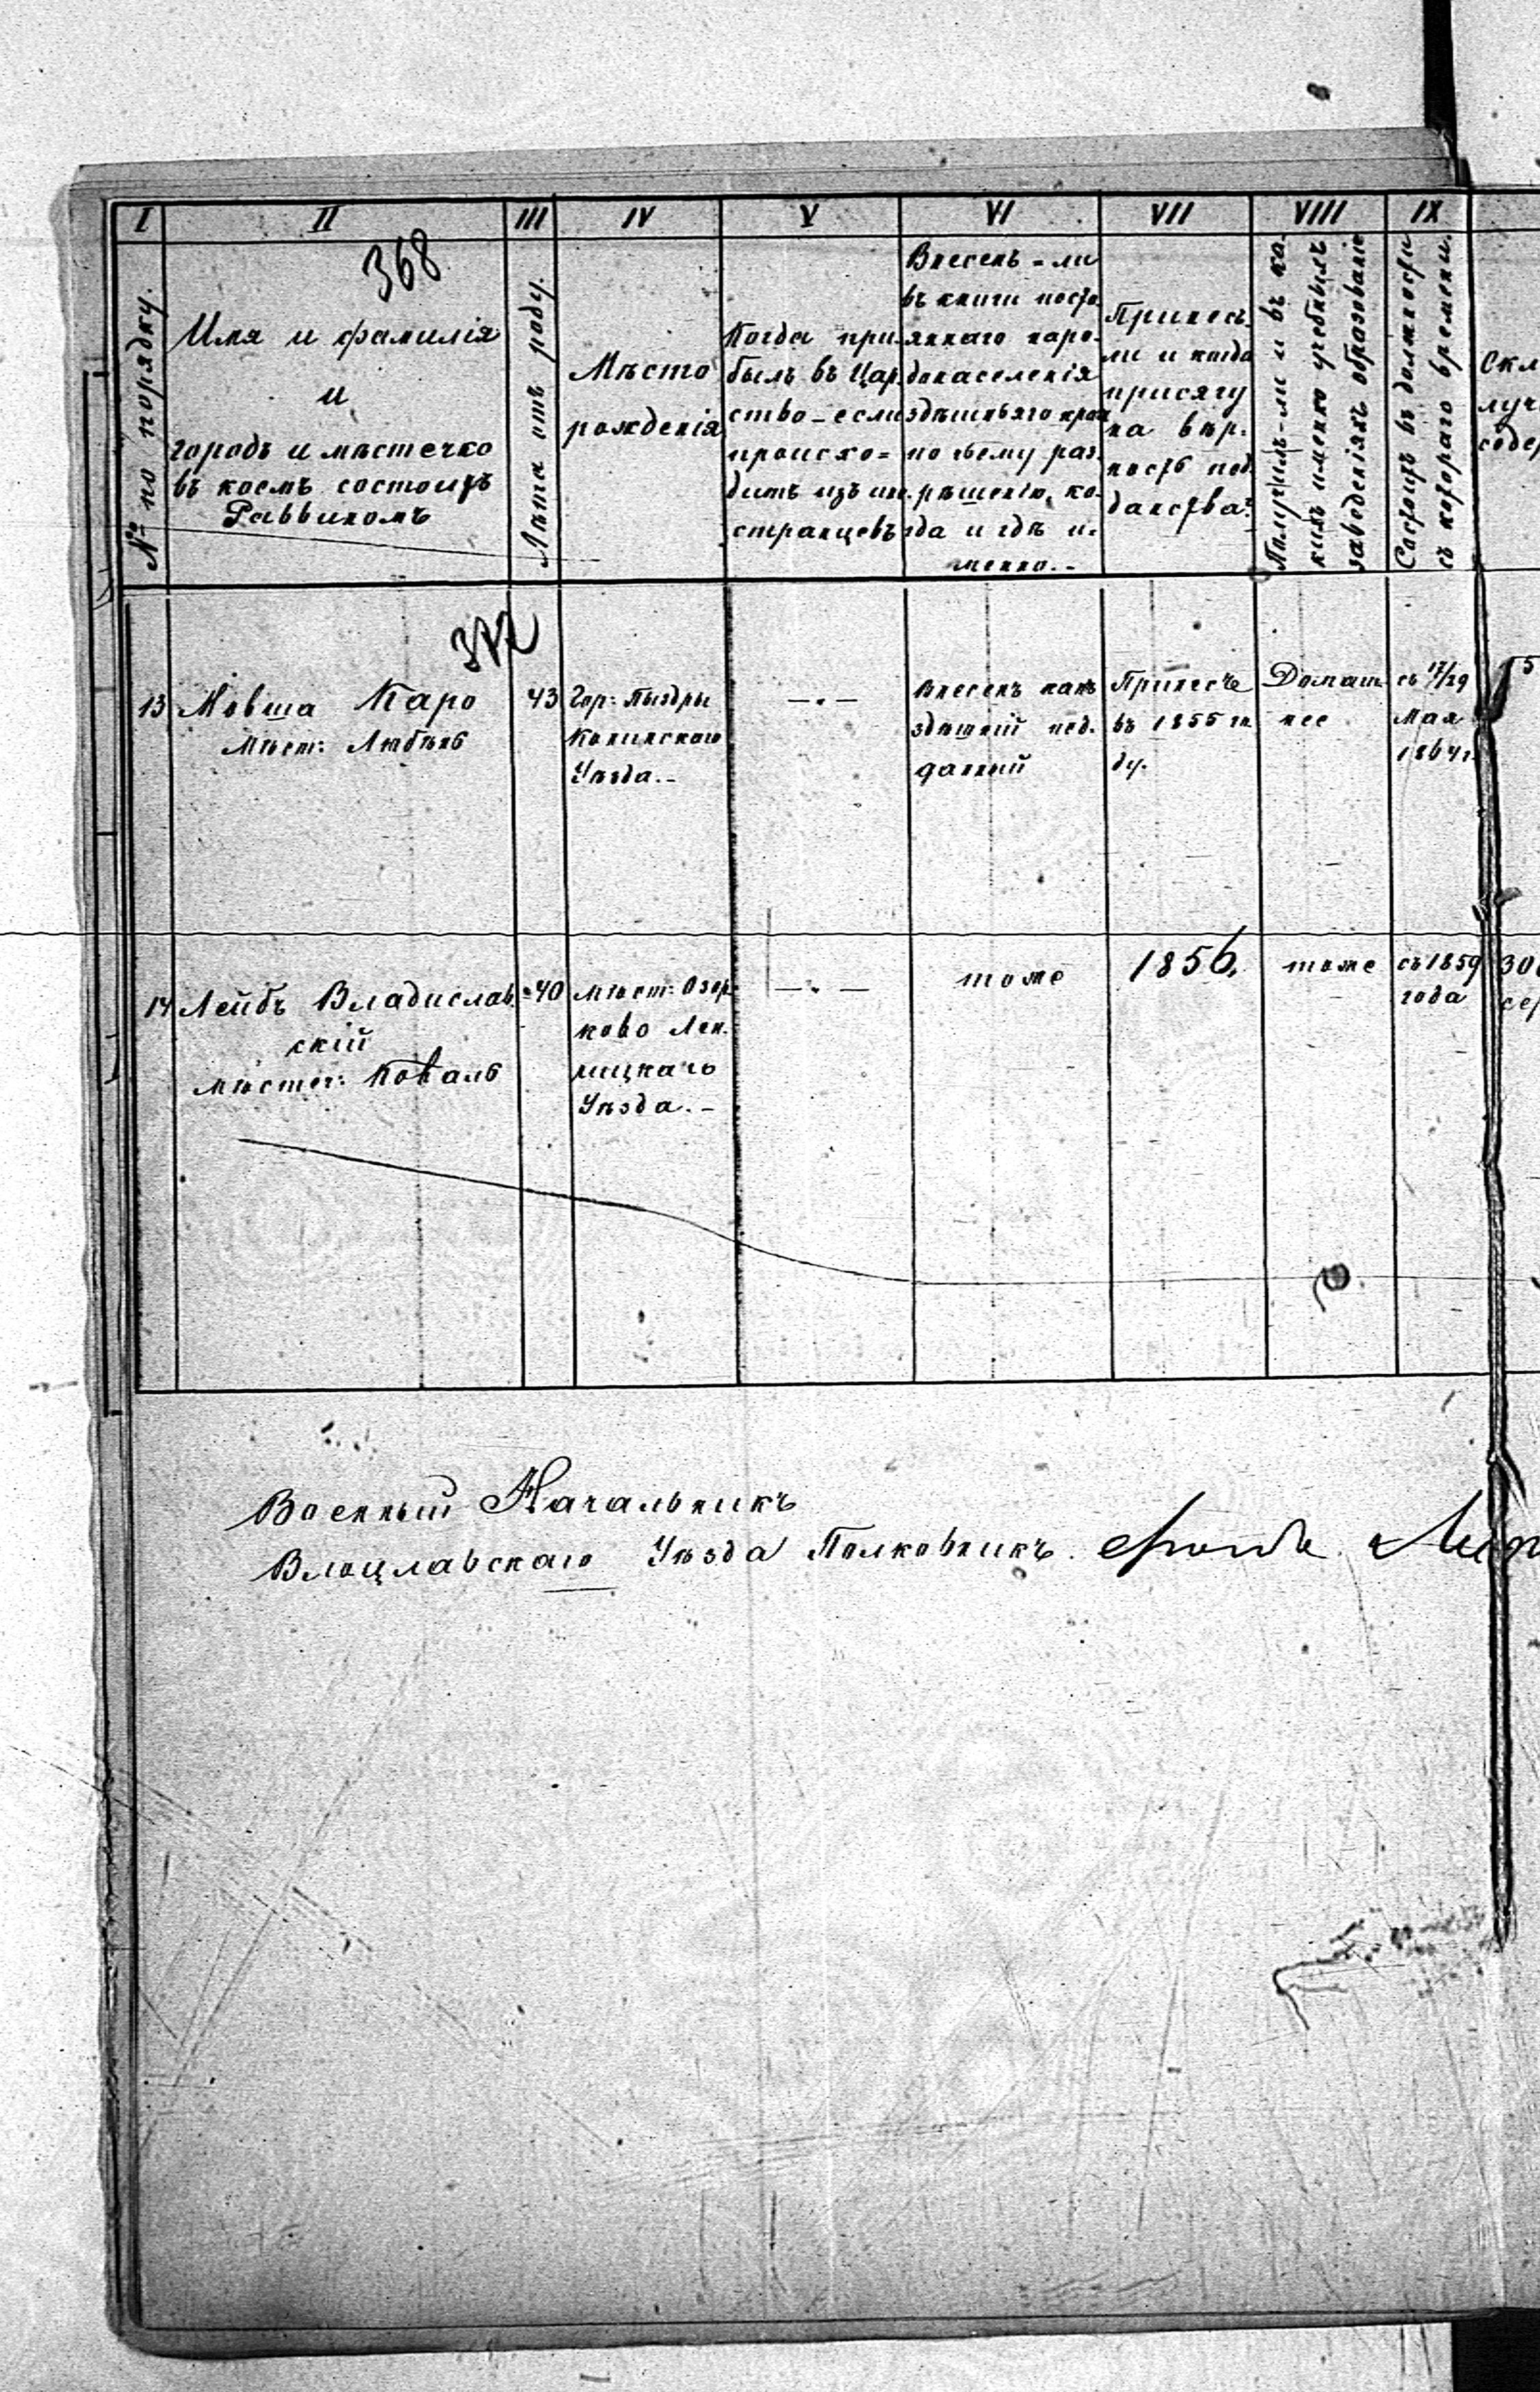 I II III IV V VI VII VIII IX
368
№ по порядку.
Имя и фамилія
и
городъ и мѣстечко
въ коемъ состоитъ
Раввиномъ
Лѣта отъ роду.
Мѣсто
рожденія
Когда при-
былъ въ Цар-
ство - если
происхо=
дитъ изъ ин-
странцевъ
Внесенъ-ли
въ книги посто-
яннаго наро-
донаселенія
здѣшняго края
по чьему раз-
рѣшенію, ко-
гда и гдѣ и-
менно.-
Принесъ-
ли и когда
присягу
на вѣр-
ность под-
данства?
Получилъ-ли и въ ка-
кихъ именно учебныхъ
заведеніяхъ образованіе
Состоитъ въ должности
съ котораго времени.
13
Мовша Каро
мѣст: Любень
43
Гор: Пыздры
Конинскаго
Уѣзда.-
—.—
Внесенъ какъ
здѣшній под-
данный
Принесъ
въ 1855 го
ду.
Домаш
нее
съ 17/29
Мая
1864 г.
14
Лейбъ Владислав-
скій
мѣстеч: Коваль
40
мѣст: Озор-
ково Лен-
чицкаго
Уѣзда.-
—.—
тоже
1856.
тоже
съ 1859
года
300
сер
Военный Начальникъ
Влоцлавскаго Уѣзда Полковникъ